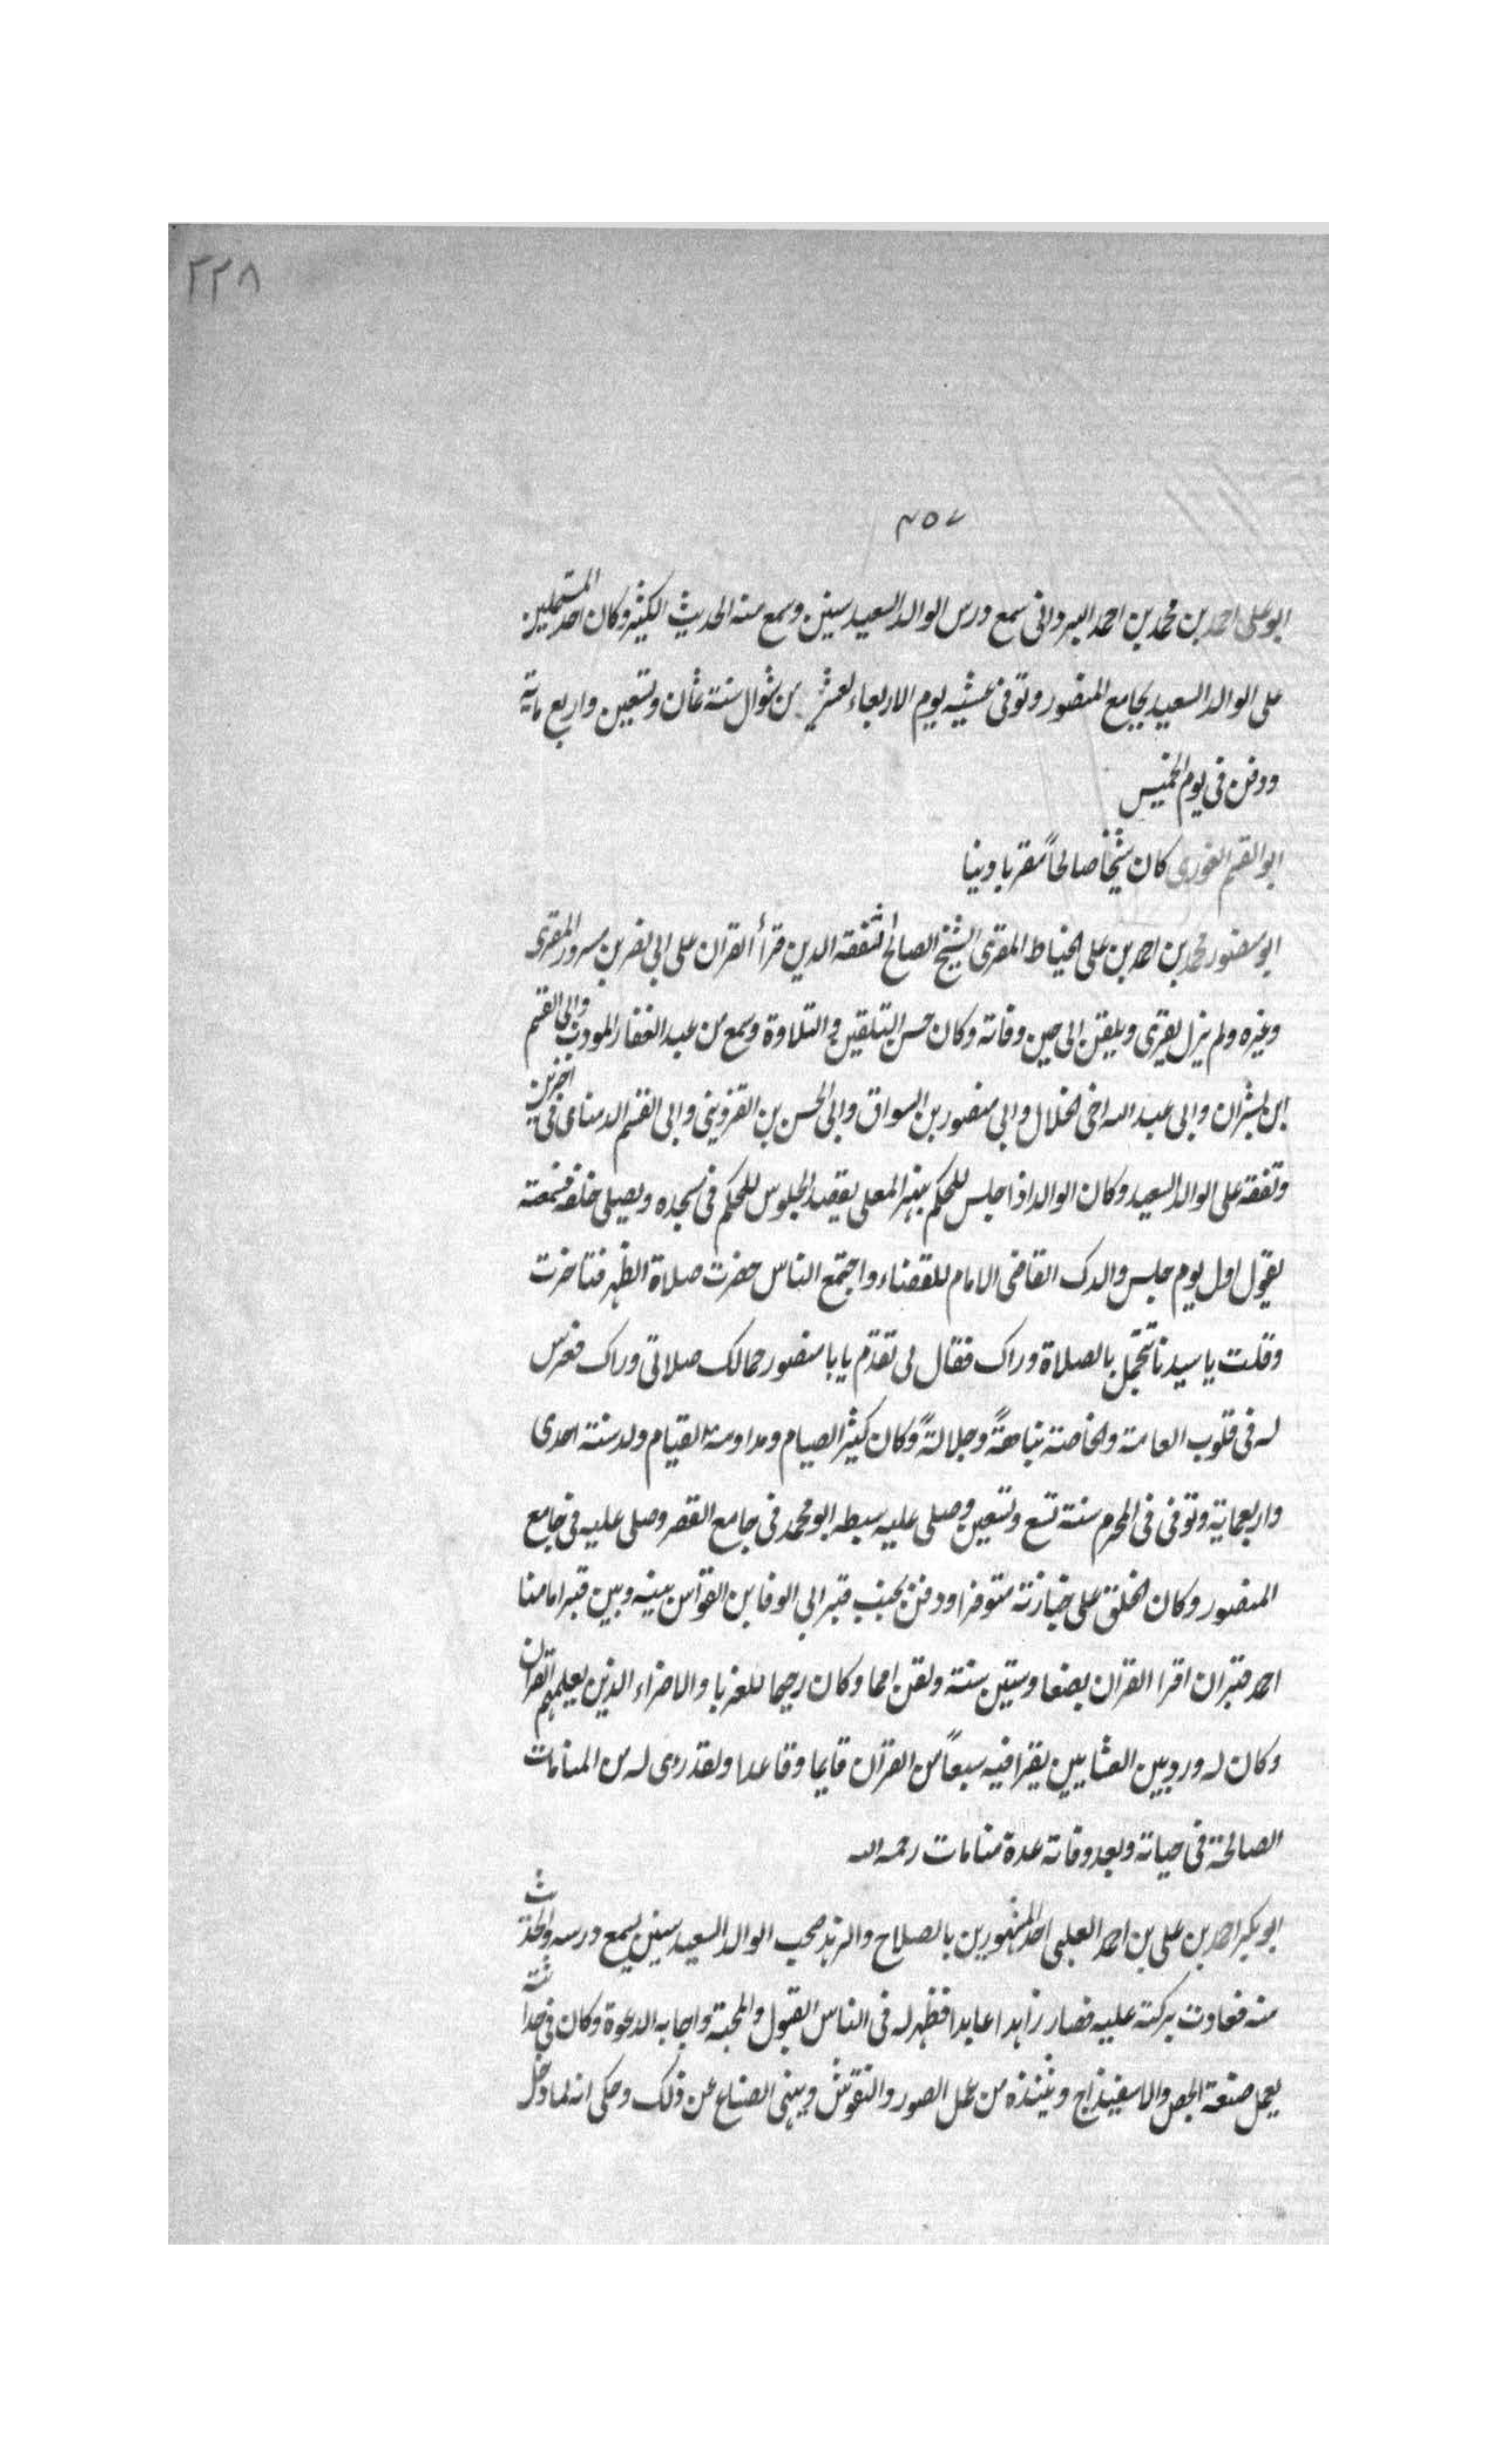 ٢٢٨
٤٥٧
ابو على احمد بن محمد بن احمد البرداني سمع درس الوالد السعيد سنين وسمع منه الحديث الكثير وكان احد المستملين
على الوالد السعيد بجامع المنصور وتوفى عشيه يوم الاربعاء لعشر من شوال سنة ثمان وتسعين واربع ماية
ودفن فى يوم الخميس
ابو القسم الغورى كان شيخا صالحاً مقريا دينا
ابو منصور محمد بن احمد بن على الخياط المقرى الشيخ الصالح الثقفة الدين قرأ القران على ابي نصر بن مسرور المقرى
وغيره ولم يزل يقرى ويلقن الى حين وفاته وكان حسن التلقين والتلاوة وسمع من عبد الغفار المودب وابى القسم
ابن بشران وابى عبد الله اخى الخلال وابي منصور بن السواق وابى الحسن بن القزوينى وابى القسم فى اخرين
وتفقه على الوالد السعيد وكان الوالد اذا جلس للحكم بنهر المعلى يقصد الجلوس للحكم فى مسجده ويصلى خلفه فسمعته
يقول اول يوم جلس والدك القاضى الامام للقضاء واجتمع الناس حضرت صلاة الظهر فتاخرت
وقلت يا سيدنا نتجمل بالصلاة وراك فقال لى تقدم يا با منصور جمالك صلاتى وراك فغرس
له فى قلوب العامة والخاصة نباهةً وجلالةً وكان كثير الصيام ومداومة القيام ولد سنة احدى
واربعماية وتوفى فى المحرم سنة تسع وتسعين وصلى عليه سبطه ابو محمد فى جامع القصر وصلى عليه فى جامع
المنصور وكان الخلق على جنازته متوفرا ودفن بجنب قبر ابي الوفا بن القواس بينه وبين قبر امامنا
احمد قبران اقرا القران بضعا وستين سنة ولقن امما وكان رحيما للغربا والاضراء الذين يعلمهم القران
وكان له ورد بين العشايين يقرا فيه سبعاً من القرآن قايما وقاعدا ولقد رءى له من المنامات
الصالحة فى حياته وبعد وفاته عدة منامات رحمه الله
ابو بكر احمد بن على بن احمد العلبى احد المشهورين بالصلاح والزهد صحب الوالد السعيد سنين يسمع درسه والحديث
منه فعادت بركته عليه فصار زاهدا عابدا فظهر له فى الناس القبول والمحبة واجابه الدعوة وكان فى حداثته
يعمل صنعة الجص والاسفيذاج من عمل الصور والنقوش وينهى الصناع عن ذلك وحكى انه لما دخل